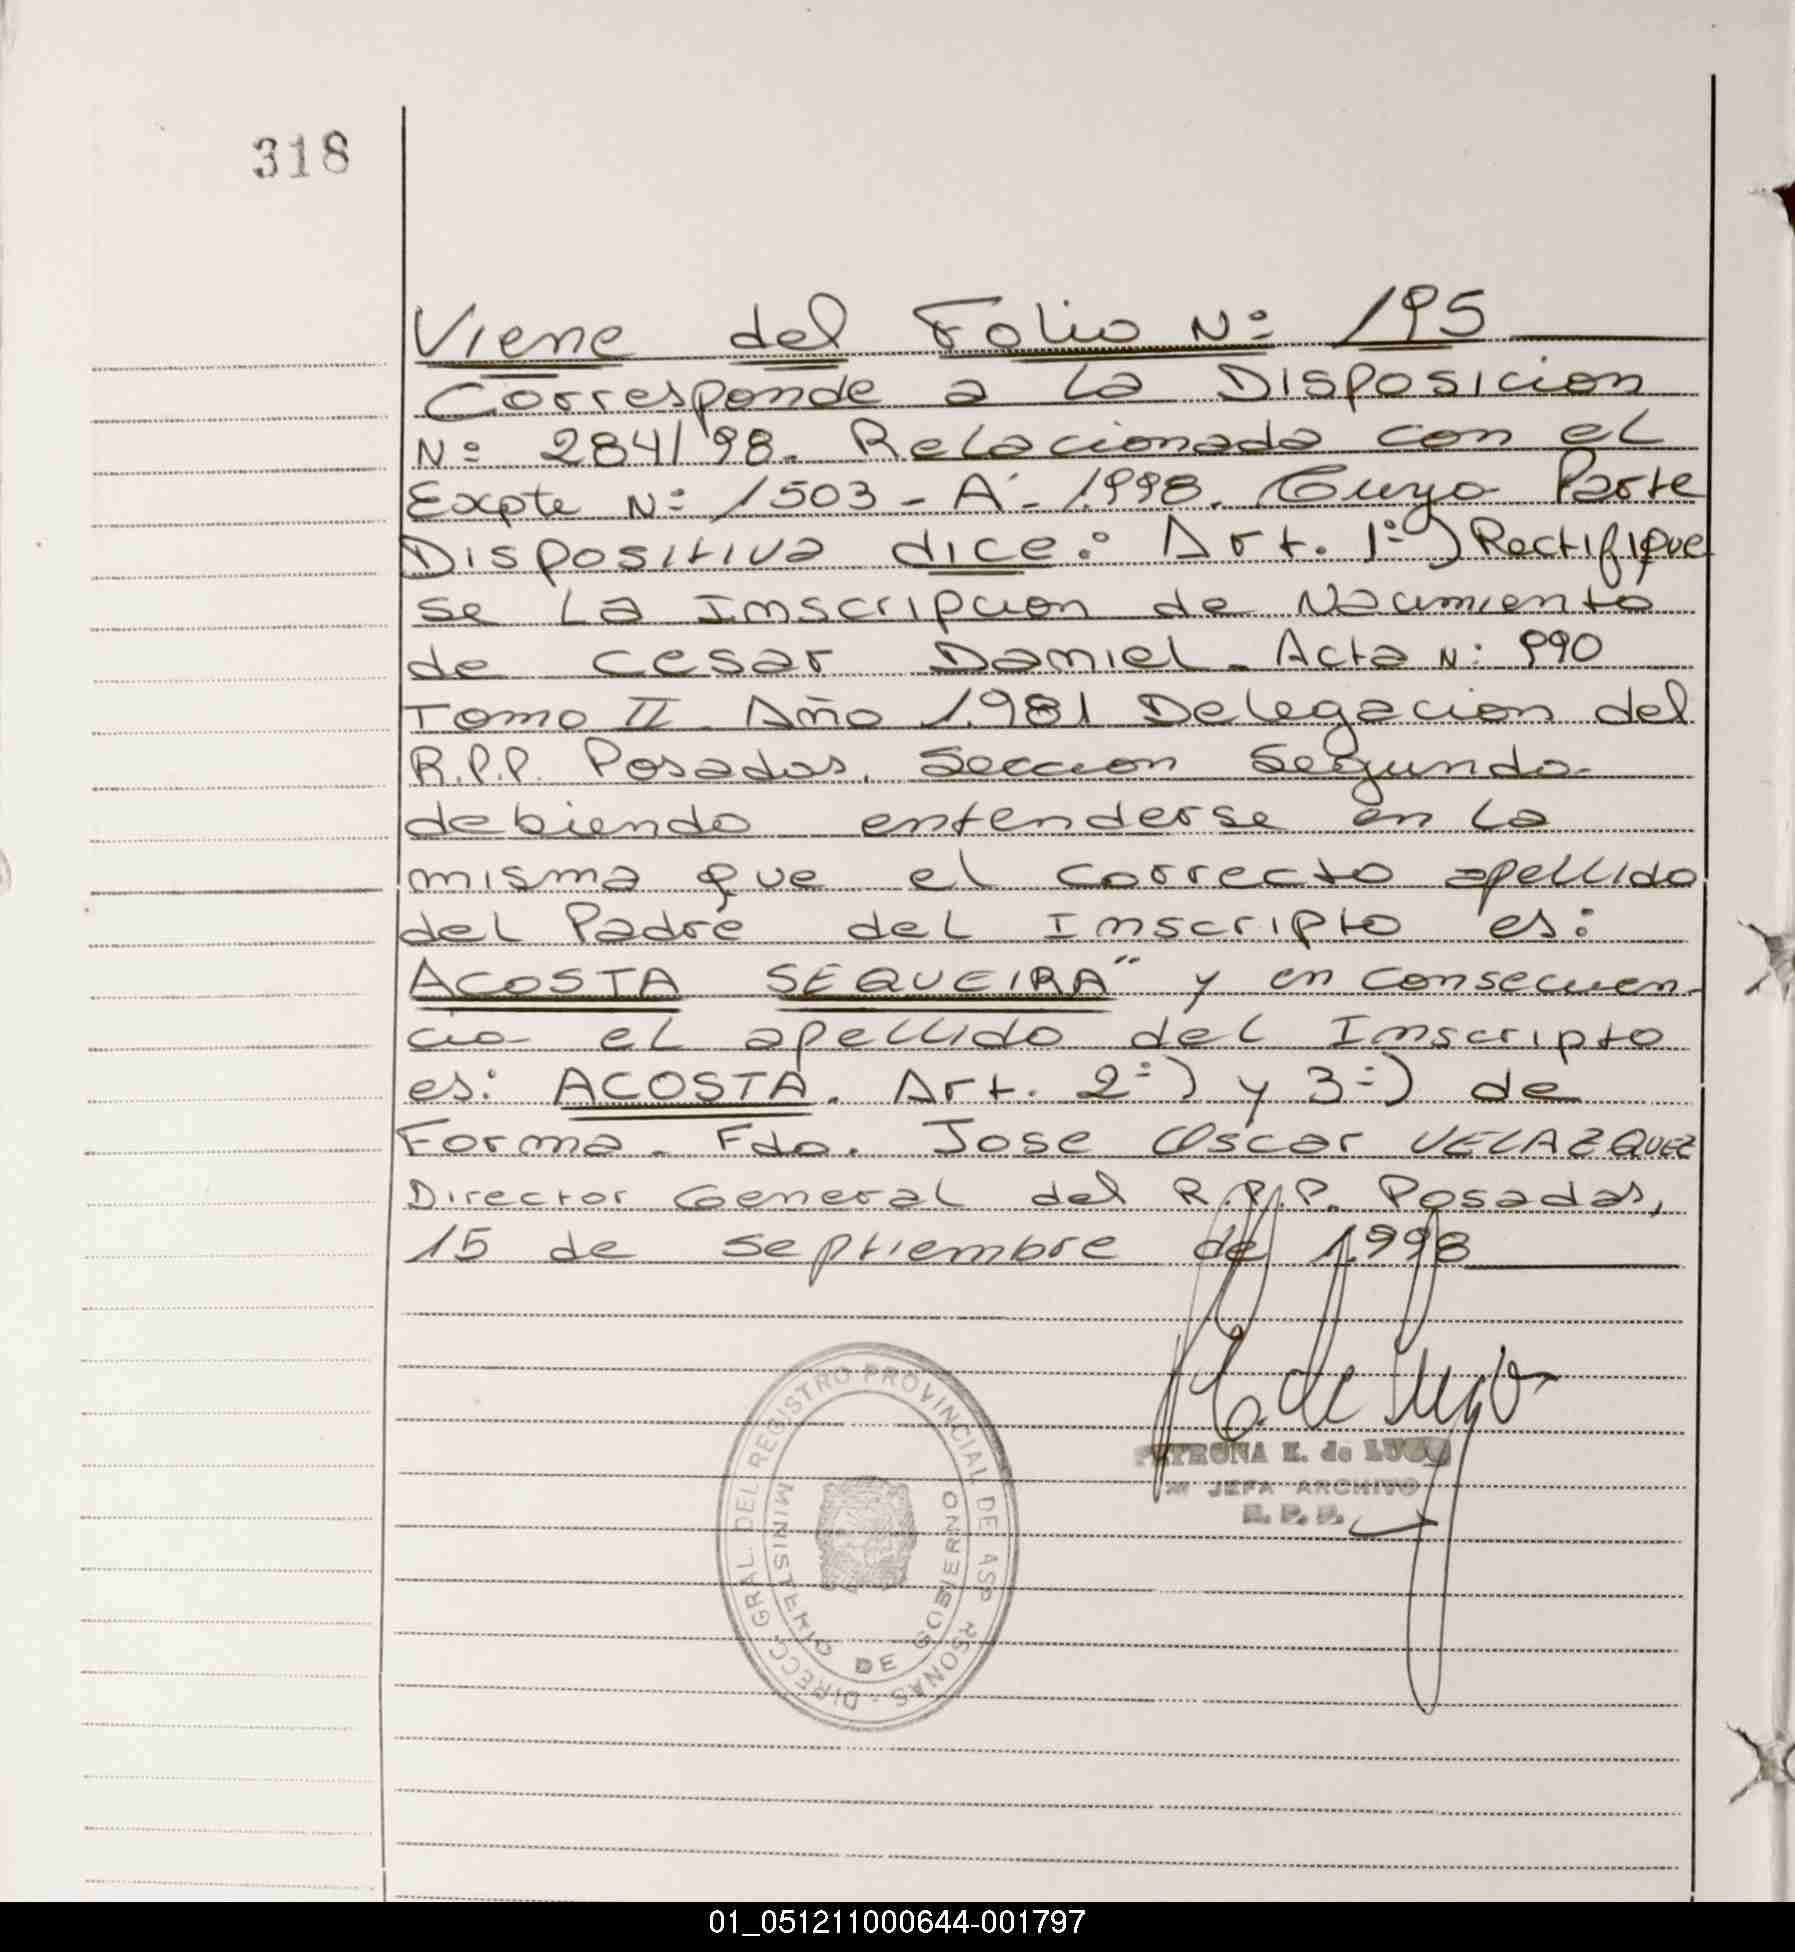 318
Viene del Folio Nº 195
Corresponde a la Disposicion
Nº 284/98. Relacionada con el
Expte Nº 1503-A-1.998. Cuya Parte
Dispositiva dice: Art. 1º) Rectifique
se La Inscripcion de Nacimiento
de Cesar Daniel. Acta Nº 990
Tomo II. Año 1.981 Delegacion del
R.P.P. Posadas. Seccion Segunda
debiendo entenderse en La
misma que el correcto apellido
del Padre del Inscripto es:
ACOSTA SEQUEIRA" y en consecuen-
cia el apellido del Inscripto
es: ACOSTA. Art. 2º) y 3º) de
Forma. Fdo. Jose Oscar VELAZQUEZ
Director General del R.P.P. Posadas,
15 de septiembre de 1.998
DIRECC. GRAL. DEL REGISTRO PROVINCIAL DE
MINISTERIO DE GOBIERNO
PETRONA E. de LUGO
JEFA ARCHIVO
R. P. P.
01_051211000644-001797